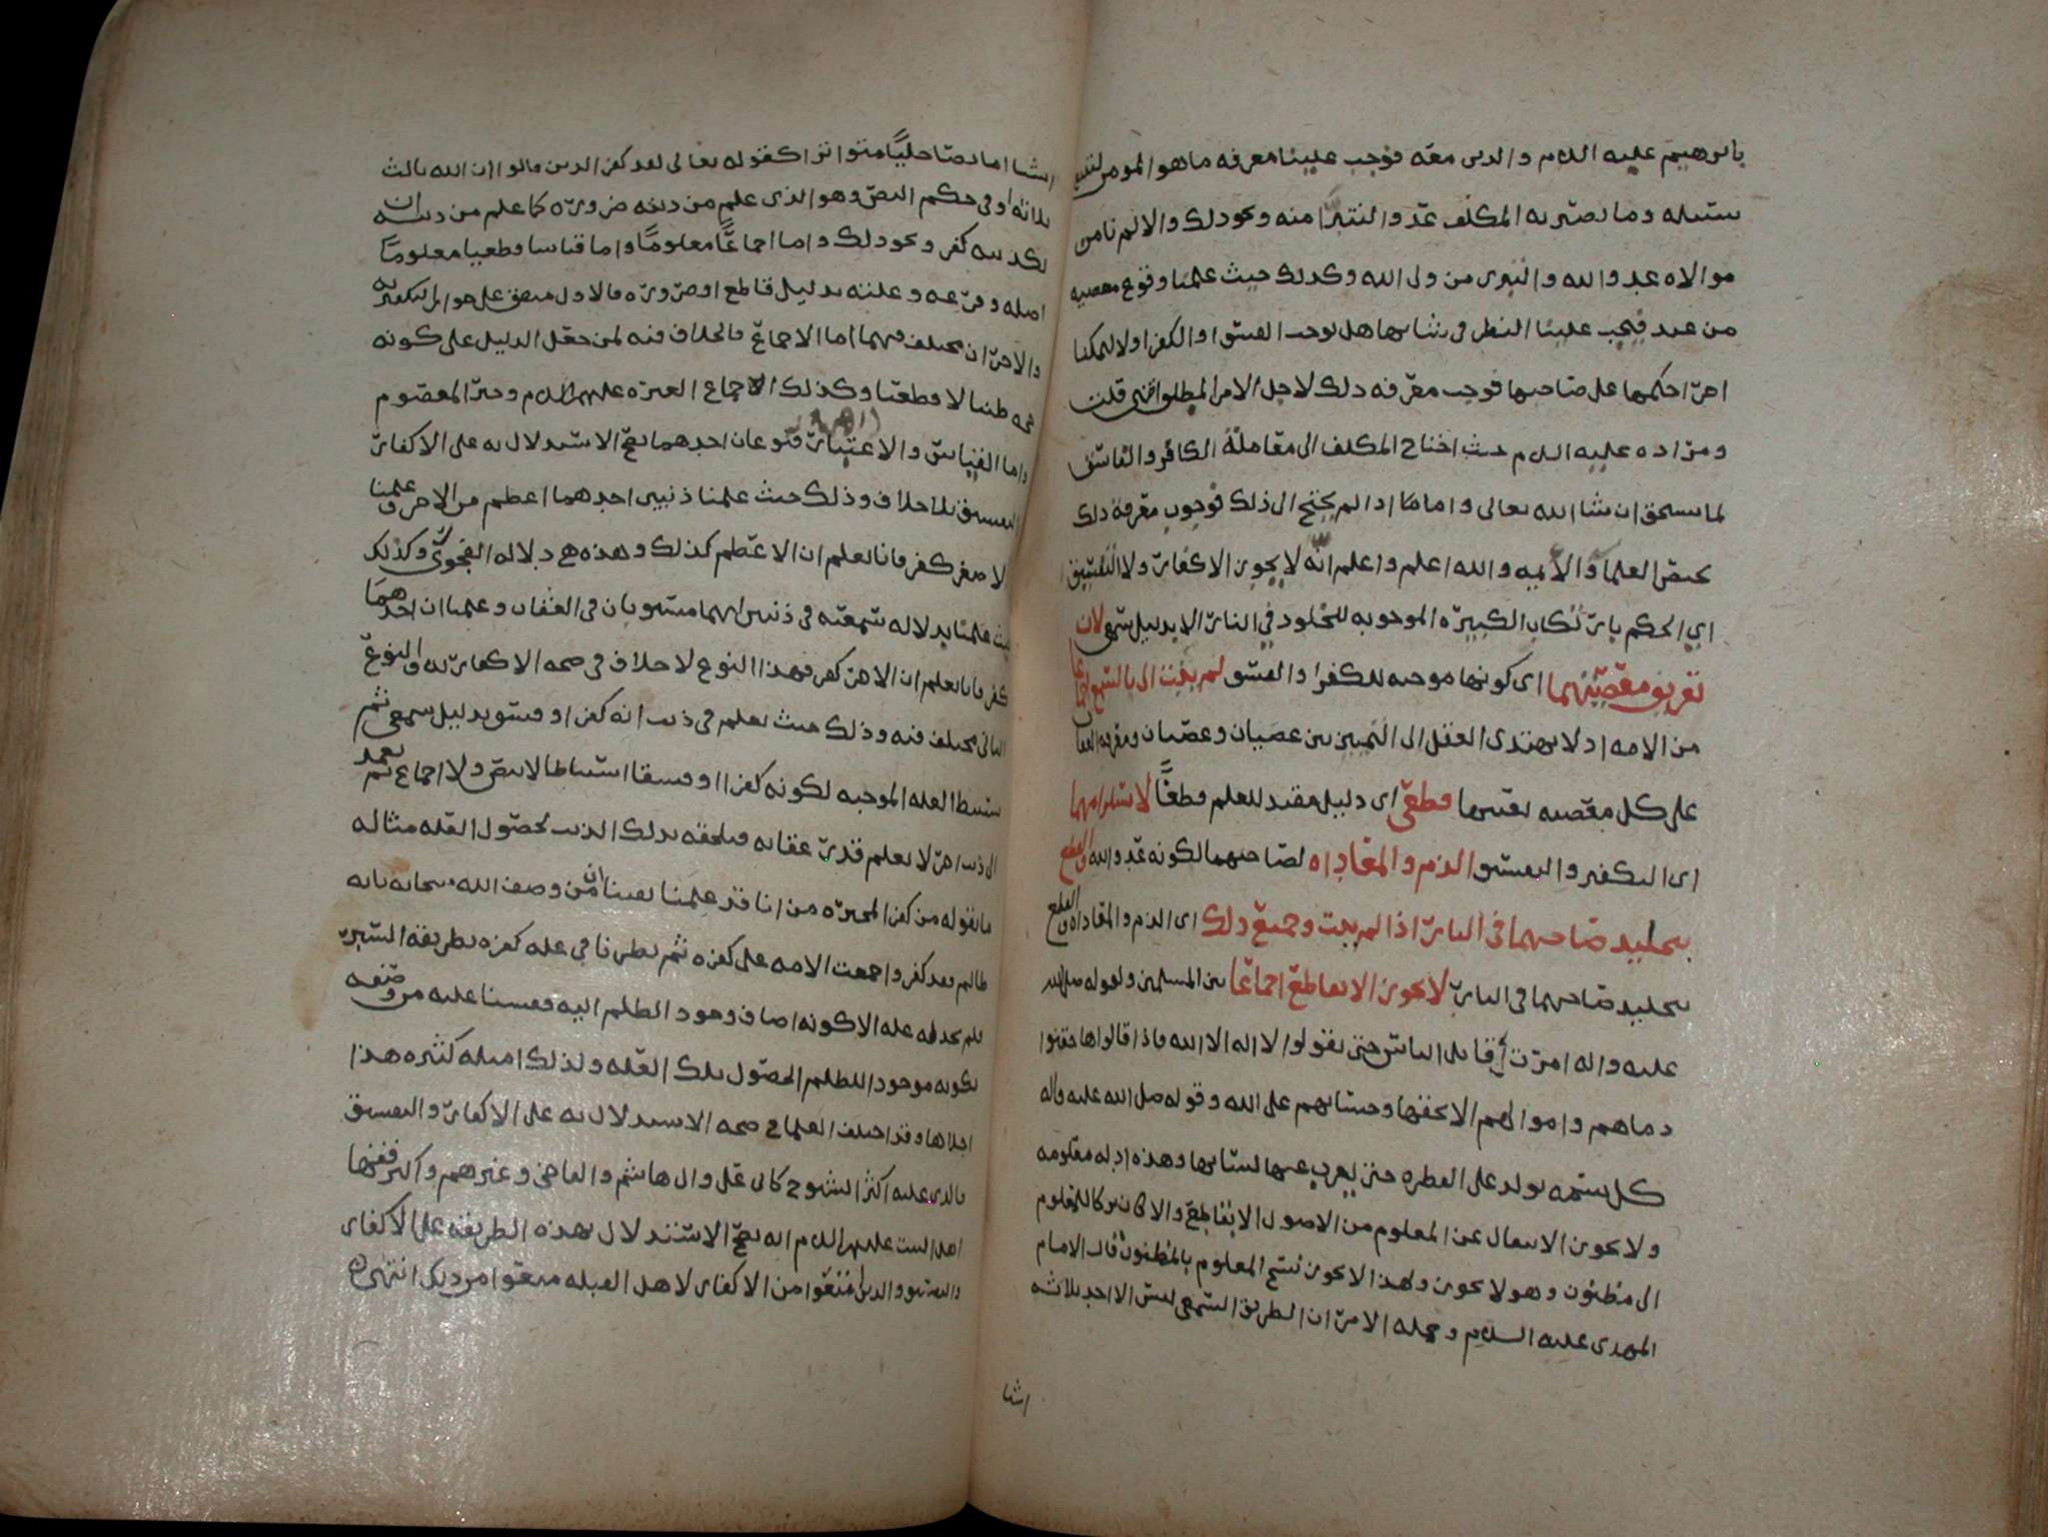 بابرهيم عليه السلام والدين معه فوجب علينا معرفه ما هو المومن لنتبع
سبيله وما يصير به المكلف عدو والنتبرا منه ونحو ذلك والا لم نامن
موالاه عدو الله والتبري من ولي الله وكذلك حيث علمنا وقوع معصيه
من عبد فيجب علينا النظر في شانها هل توجب الفسق او الكفر اولا ليمكننا
اجرا حكمها على صاحبها فوجب معرفه ذلك لاجل الامر المطلق انتهى قلت
ومراده عليه السلام حيث احتاج المكلف الى معاملة الكافر والفاسق
لما يستحق ان شا الله تعالى واما اذا لم يحتج الى ذلك فوجوب معرفة ذلك
تختص العلما والأيمه والله اعلم واعلم انه لا يجوز الاكفار ولا التفسيق
اي الحكم بارتكاب الكبيره الموجبه للخلود في النار الا بدليل سمعي لان
تعريف معصيتهما اي كونها موجبه للكفر او الفسق لم يثبت الا بالسمع اجماعا
من الامه اذ لا يهتدي العقل الى التمييز بين عصيان وعصيان ومعرفه العقاب
على كل معصيه بعينها قطعي اي دليل مفيد للعلم قطعًا لاستلزامهما
اي التكفير والتفسيق الذم والمعاداه لصاحبهما لكونه عدو الله والقطع
بتخليد صاحبهما في النار اذا لم يتب وجميع ذلك اي الذم والمعاداه والقطع
بتخليد صاحبهما في النار لا يجوز الا بقاطع اجماعا بين المسلمين ولقوله صلى الله
عليه واله امرت أن اقاتل الناس حتى يقولوا لا اله الا الله فاذا قالوها حقنوا
دماهم واموالهم الا بحقها وحسابهم على الله وقوله صلى الله عليه واله
كل نسمه تولد على الفطره حتى يعرب عنها لسانها وهذه ادله معلومه
ولا يجوز الانتقال عن المعلوم من الاصول الا بقاطع والا كان تركا للمعلوم
الى مظنون وهو لا يجوز ولهذا لا يجوز نسخ المعلوم بالمظنون قال الامام
المهدي عليه السلام وجمله الامر ان الطريق السمعي ليس الا احد ثلاثه
اشيا
اشيا اما نصا جليًا متواترا كقوله تعالى لقد كفر الذين قالوا ان الله ثالث
ثلاثه او في حكم النص وهو الذي علم من دينه ضروره كما علم من دينه ان
تكذيبه كفر ونحو ذلك واما اجماعًا معلومًا واما قياسا قطعيا معلومًا
اصله وفرعه وعلته بدليل قاطع او ضروره فالاول متفق على جواز التكفير به
والاخران مختلف فيهما اما الاجماع فالخلاف فيه لمن جعل الدليل على كونه
حجه ظنيا لا قطعيا وكذلك اجماع العتره عليهم السلام وخبر المعصوم
واما القياس والاعتبار فنوعان احدهما يصح الاستدلال به على الاكفار
والتفسيق بلا خلاف وذلك حيث علمنا ذنبين احدهما اعظم من الاخر وعلمنا
الاصغر كفر فانا نعلم ان الاعظم كذلك وهذه هي دلاله الفحوى وكذلك
حيث علمنا بدلاله سمعيه في ذنبين انهما مستويان في العقاب وعلمنا ان احدهما
كفر فانا نعلم ان الاخر كفر فهذا النوع لا خلاف في صحه الاكفار به والنوع
الثاني مختلف فيه وذلك حيث نعلم في ذنب انه كفر او فسق بدليل سمعي ثم
نستنبط العله الموجبه لكونه كفرا او فسقا استنباطا لا بنص ولا اجماع ثم نعمد
الى ذنب اخر لا نعلم قدر عقابه فنلحقه بذلك الذنب لحصول العله مثاله
ما يقوله من كفر المجبره من انا قد علمنا يقينا ان من وصف الله سبحانه بانه
ظالم فقد كفر واجمعت الامه على كفره ثم نظرنا في عله كفره بطريقه السبر
فلم نجد له عله الا كونه اضاف وجود الظلم اليه فقسنا عليه من وصفه
بكونه موجود الظلم لحصول تلك العله ولذلك امثله كثيره هذا
اجلاها وقد اختلف العلما في صحه الاستدلال به على الاكفار والتفسيق
فالذي عليه اكثر الشيوخ كابي علي وابي هاشم والقاضي وغيرهم واكثر فقها
اهل البيت عليهم السلام انه يصح الاستدلال بهذه الطريقه على الاكفار
والتفسيق والذين منعوا من الاكفار لاهل القبله منعوا من ذلك انتهى